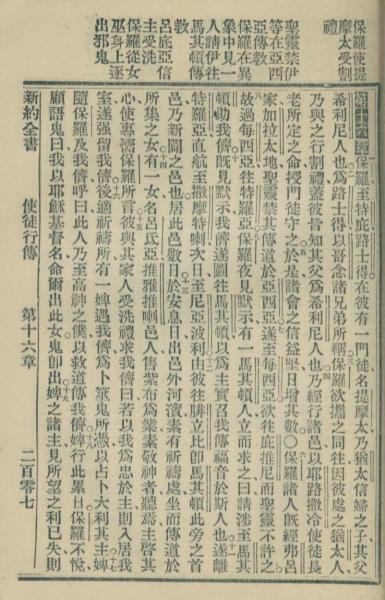 保羅使提
摩太受割
禮
聖靈禁伊
等在亞西
亞傳教
保羅在異
象中見一
人請伊往
馬其頓傳
教
呂底亞信
主受洗
保羅從女
巫身上逐
出邪鬼
第十六章 保羅至特庇路士得在彼有一門徒名提摩太乃猶太信婦之子其父
希利尼人也爲路士得以哥念諸兄弟所稱保羅欲攜之同往因彼處之猶太人
乃與之行割禮蓋彼皆知其父爲希利尼人也乃經行諸邑以耶路撒冷使徒長
老所定之命授門徒守之於是諸會之信益堅日增其數〇保羅諸人既經弗呂
家加拉太地聖靈禁其傳道於亞西亞遂至每西亞欲往庇推尼而聖靈不許之
故過每西亞往特羅亞保羅夜見默示有一馬其頓人立而求之曰請涉至馬其
頓助我儕既見默示我儕遂圖往馬其頓以爲主實召我傳福音於斯人也遂離
特羅亞直航至撒摩特喇次日至尼亞波利由彼往腓立比卽馬其頓此旁之首
邑乃新闢之邑也居此邑數日於安息日出邑外河濱素有祈禱處坐而傳道於
所集之女有一女名呂氏亞推雅推喇邑人售紫布爲業素敬神者聽焉主啓其
心使專聽保羅所言彼與其家人受洗禮求我儕曰若以我爲忠於主則入居我
室遂强留我儕後適祈禱所有一婢遇我儕爲卜筮鬼所憑以占卜大利其主婢
隨保羅及我儕呼曰此人乃至高神之僕以救道傳我儕婢行此累日保羅不悅
顧語鬼曰我以耶穌基督名命爾出此女鬼卽出婢之諸主見所望之利已失則
新約全書 使徒行傳 第十六章 二百零七